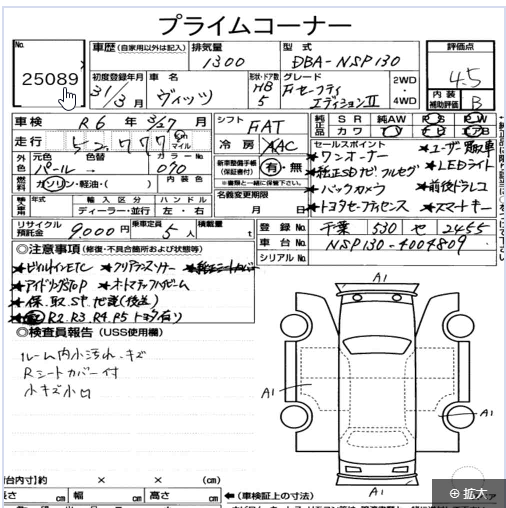 プライムコーナー
No. 25089
車歴 (自家用以外は記入) 排気量 1300 型式 DBA-NSP130 評価点 4.5
初度登録年月 31/3月 車名 ヴィッツ 形状・ドア数 HB 5 グレード Fセーフティ エディションII 2WD・4WD 内装補助評価 B
車検 R6年3/27月 シフト FAT 純正品 SR 純AW PS PW
カワ TV エアB
走行 52,777 km マイル 冷房 AAC セールスポイント
外色 元色 色替 パール カラーNo 070 新車整備手帳 (保証書付) 有・無 ※書類と一緒に保管下さい。
★ワンオーナー ★ユーザー買取車
★純正SDナビ フルセグ ★LEDライト
燃料 ガソリン・軽油・( ) 内装色 名義変更期限 月 日
★バックカメラ ★前後ドラレコ
輸入車 年式 輸入区分 ハンドル ディーラー・並行 左・右
★トヨタセーフティセンス ★スマートキー
リサイクル預託金 9,000円 乗車定員 5人 積載量 t
登録No 千葉 530 せ 2455
車台No NSP130-4004809
シリアルNo
○注意事項 (修復・不具合箇所および状態等)
★ビルトインETC ★クリアランスソナー
★アイドリングSTOP ★オートマチックハイビーム
★保.取.SP.地デジ(後送)
R2.R3.R4.R5
○検査員報告 (USS使用欄)
ルーム内小汚れ.キズ
Rシートカバー付
小キズ小凹
A1
A1
A1
A1
(荷台内寸) 約 × × (cm)
長さ cm 幅 cm 高さ cm ←(車検証上の寸法)
拡大